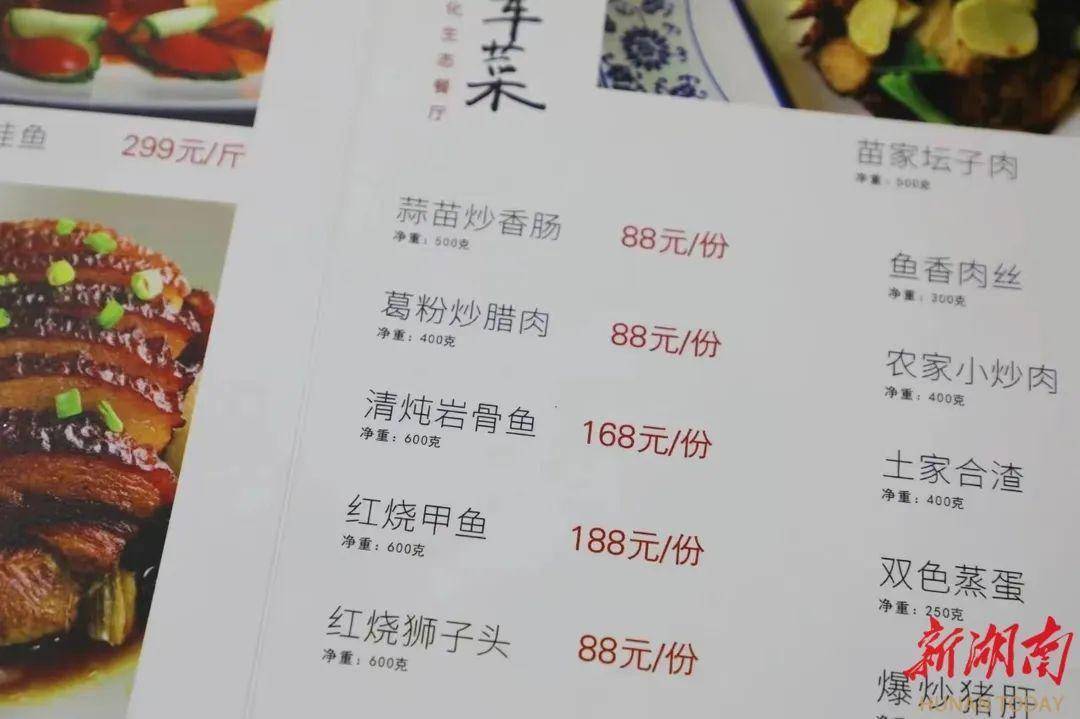 鱼
299元/斤
化生态餐厅
菜
蒜苗炒香肠
88元/份
净重：500克
葛粉炒腊肉
88元/份
净重：400克
清炖岩骨鱼
168元/份
净重：600克
红烧甲鱼
188元/份
净重：600克
红烧狮子头
88元/份
净重：600克
苗家坛子肉
净重：500克
鱼香肉丝
净重：300克
农家小炒肉
净重：400克
土家合渣
净重：400克
双色蒸蛋
净重：250克
爆炒猪肝
新湖南
HUNAN TODAY